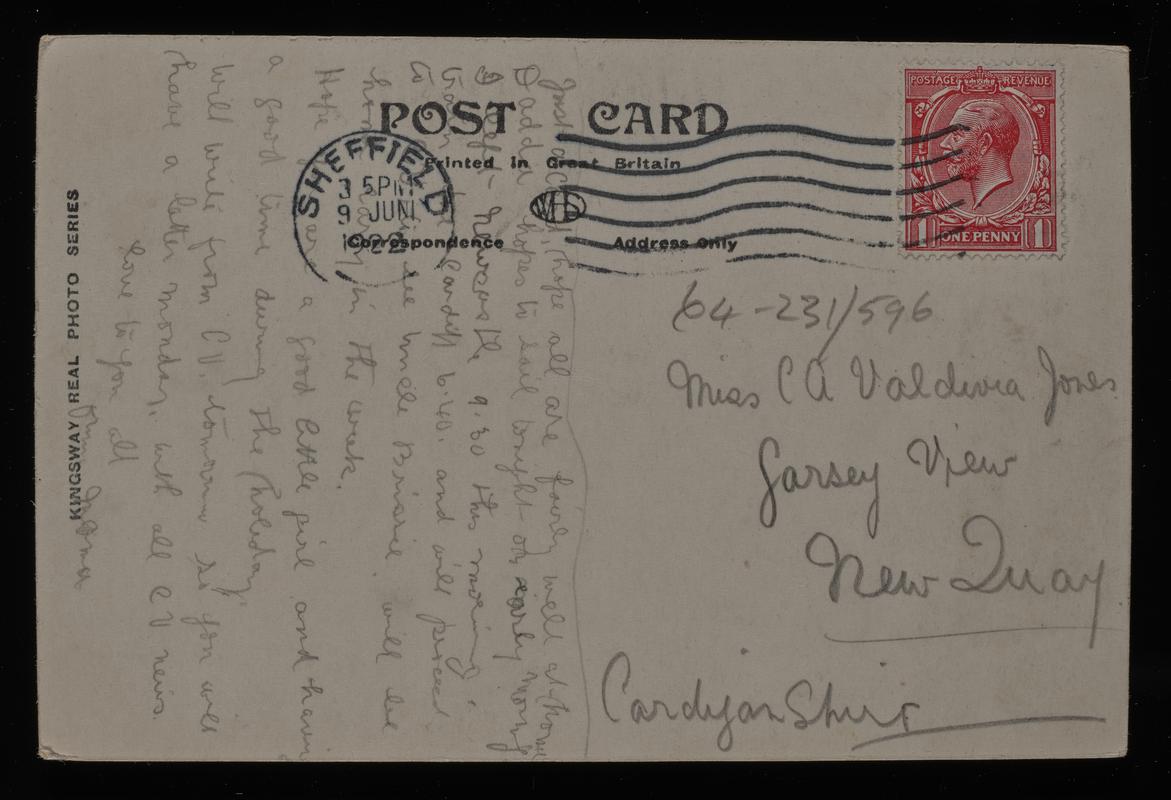 POST CARD
Printed in Great Britain
Correspondence
Address Only
WHS
KINGSWAY REAL PHOTO SERIES
SHEFFIELD
3 5PM
9 JUN
22
POSTAGE REVENUE
1 ONE PENNY 1
64-231/596
Miss C A Valdivia Jones
Garsey View
New Quay
Cardigan Shire
Just a Cd, hope all are fairly well at home
Dadda hopes to sail tonight or early morng
I left Newcastle 9.30 this morning
to Cardiff 6.40. and will proceed
to see Uncle Brisric. will be
home in the week.
Hope you are a good little girl and havin
a good time during the holiday.
Will write from C V. tomorrow so you will
have a letter Monday. with all C V news.
love to you all
from Mama